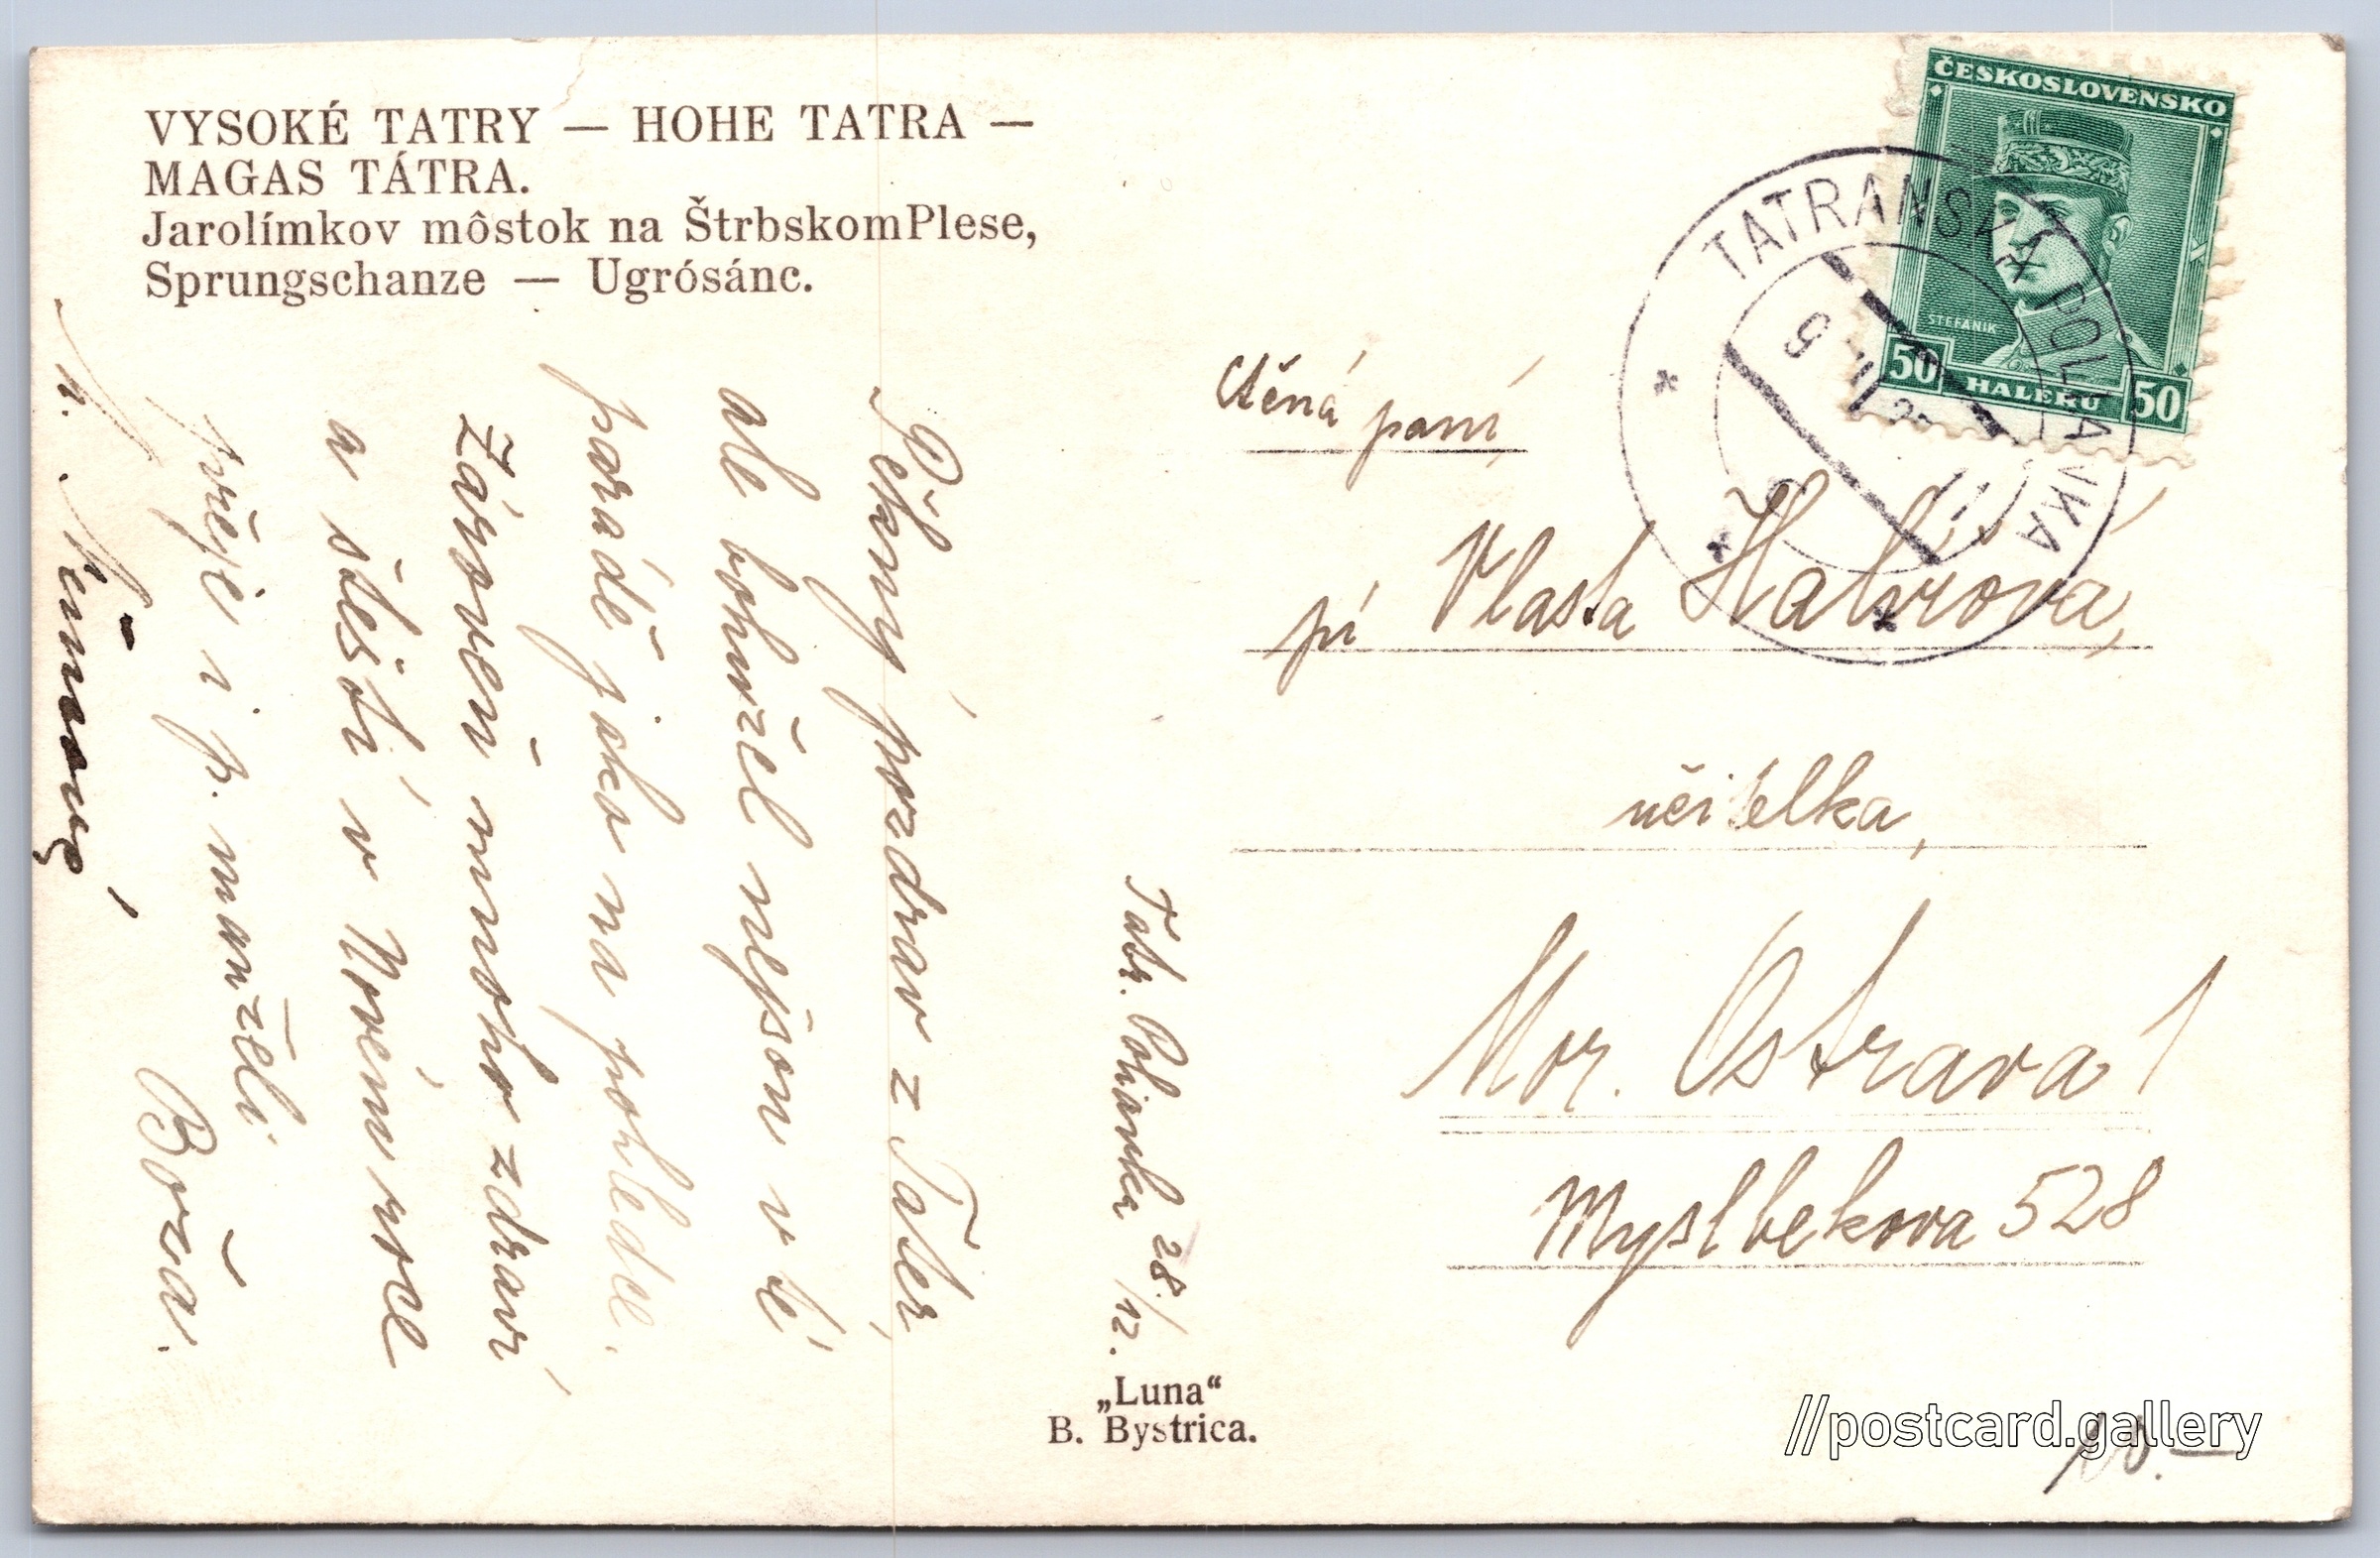 VYSOKÉ TATRY — HOHE TATRA —
MAGAS TÁTRA.
Jarolímkov môstok na Štrbskom Plese,
Sprungschanze — Ugrósánc.
ČESKOSLOVENSKO
ŠTEFÁNIK
50 HALÉŘŮ 50
TATRANSKÁ POLIANKA
Ctěná paní,
pí Vlasta Habrová,
učitelka,
Mor. Ostrava!
Myslbekova 528
Tatr. Polianka 28./12.
Pěkný pozdrav z Tater,
ale bohužel nejsou v té
parádě jako na pohledce.
Zároveň mnoho zdraví
a štěstí v Novém roce
přeje i p. manželi
Boža.
„Luna“
B. Bystrica.
//postcard.gallery
10.—